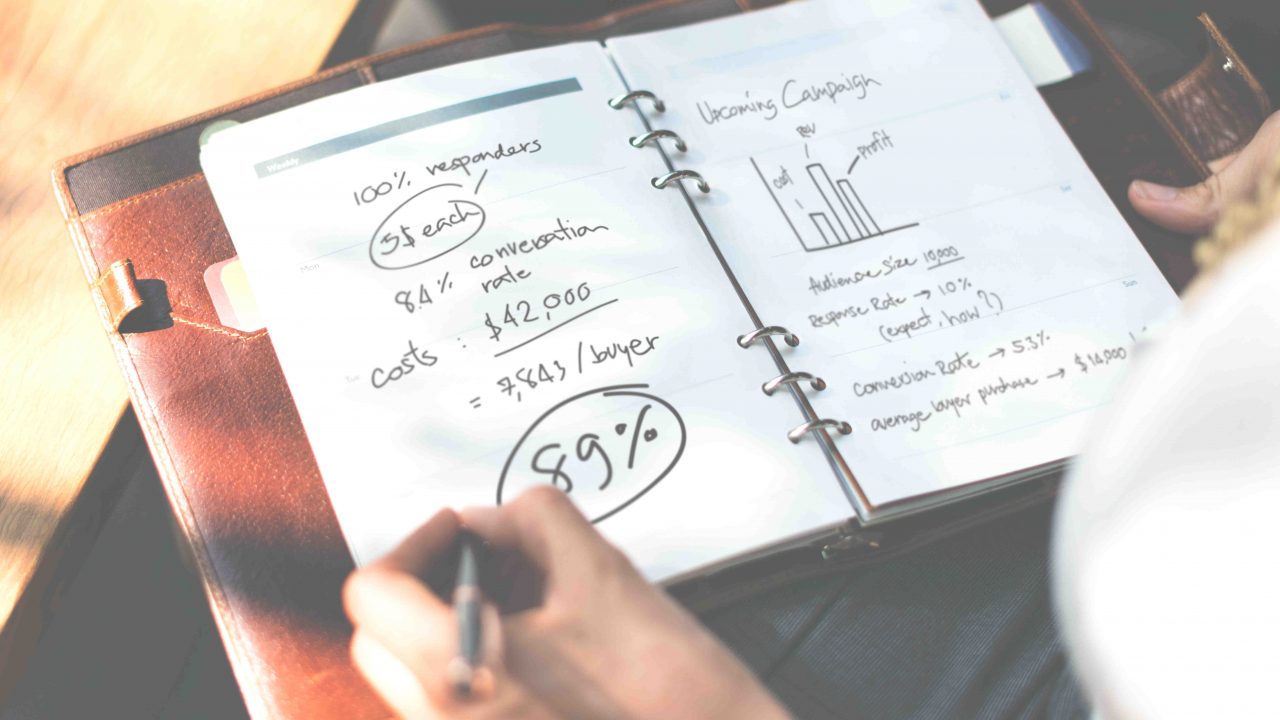 Weekly
100% responders
5$ each
84% conversation
rate
Mon
costs : $42,000
Tue
= 7,843/buyer
89%
Upcoming Campaign
Fri
rev
cost
profit
Sat
Audience size 10,000
Response Rate → 10%
(expect, how?)
Sun
Conversion Rate → 5.3%
average buyer purchase → $14,000